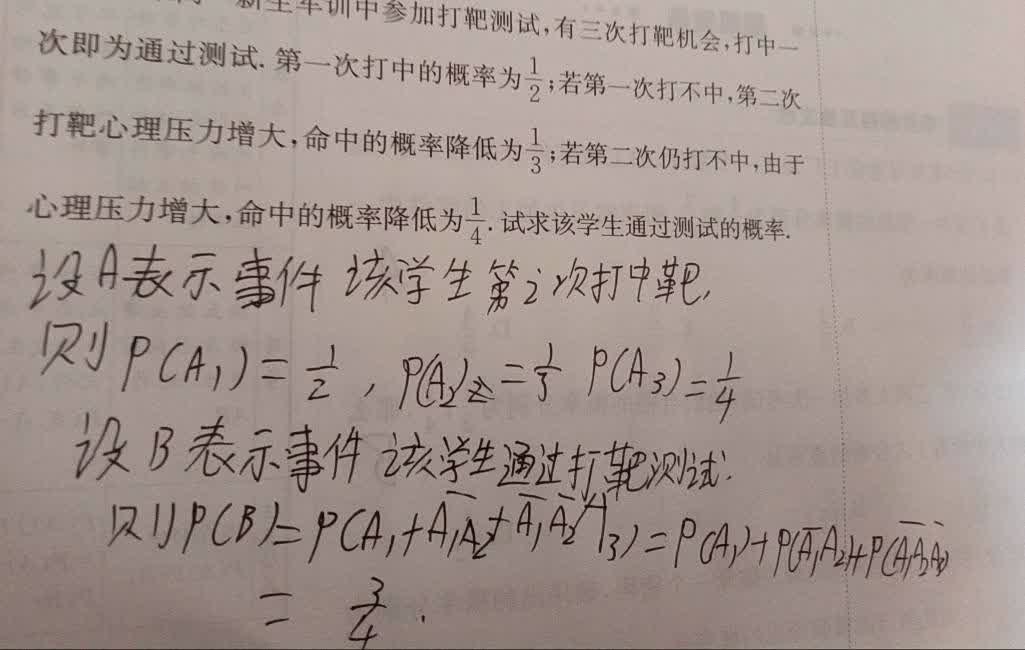 新生军训中参加打靶测试,有三次打靶机会,打中一
次即为通过测试.第一次打中的概率为1/2;若第一次打不中,第二次
打靶心理压力增大,命中的概率降低为1/3;若第二次仍打不中,由于
心理压力增大,命中的概率降低为1/4.试求该学生通过测试的概率.
设A表示事件 该学生第i次打中靶,
则P(A₁)=1/2, P(A₂)=1/3 P(A₃)=1/4
设B表示事件 该学生通过打靶测试.
则P(B)=P(A₁+A̅₁A₂+A̅₁A̅₂A₃)=P(A₁)+P(A̅₁A₂)+P(A̅₁A̅₂A₃)
= 3/4.